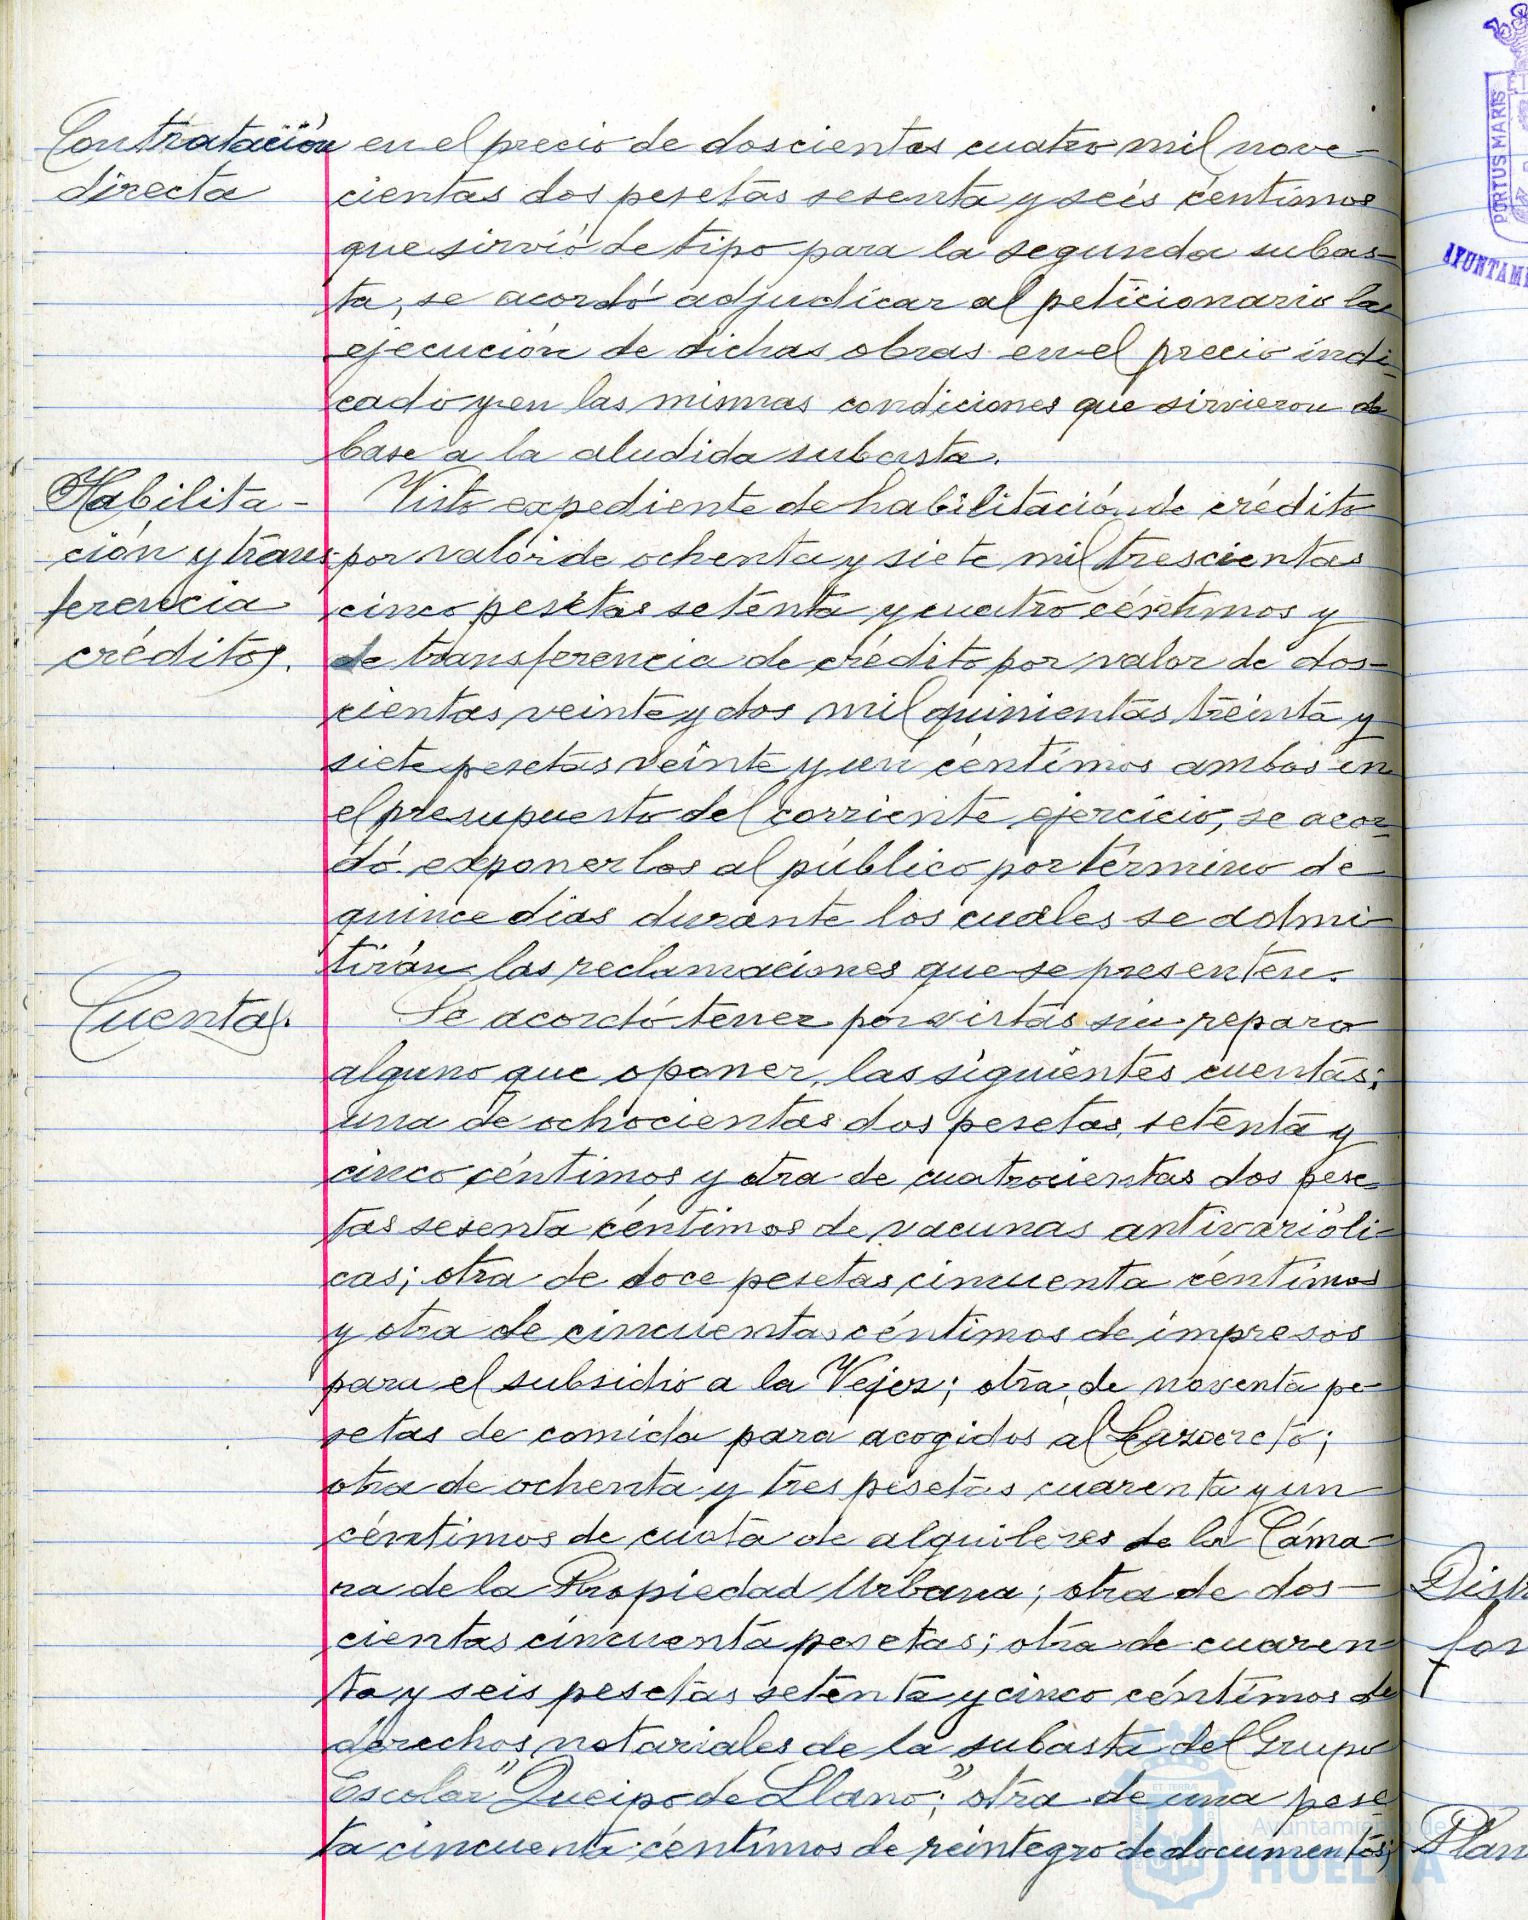 Contratación en el precio de doscientas cuatro mil nove-
directa cientas dos pesetas sesenta y seis céntimos
que sirvió de tipo para la segunda subas-
ta, se acordó adjudicar al peticionario la
ejecución de dichas obras en el precio indi-
cado y en las mismas condiciones que sirvieron de
base a la aludida subasta.
Habilita- Visto expediente de habilitación de crédito
ción y trans- por valor de ochenta y siete mil trescientas
ferencia cinco pesetas setenta y cuatro céntimos y
créditos. de transferencia de crédito por valor de dos-
cientas veinte y dos mil quinientas treinta y
siete pesetas veinte y un céntimos ambos en
el presupuesto del corriente ejercicio, se acor-
dó exponerlos al público por término de
quince dias durante los cuales se admi-
tirán las reclamaciones que se presenten.
Cuentas. Se acordó tener por vistas sin reparo
alguno que oponer, las siguientes cuentas;
una de ochocientas dos pesetas setenta y
cinco céntimos y otra de cuatrocientas dos pese-
tas sesenta céntimos de vacunas antivarióli-
cas; otra de doce pesetas cincuenta céntimos
y otra de cincuenta céntimos de impresos
para el subsidio a la Vejez; otra de noventa pe-
setas de comida para acogidos al Lazareto;
otra de ochenta y tres pesetas cuarenta y un
céntimos de cuota de alquileres de la Cáma-
ra de la Propiedad Urbana; otra de dos-
cientas cincuenta pesetas; otra de cuaren-
ta y seis pesetas setenta y cinco céntimos de
derechos notariales de la subasta del Grupo
Escolar "Queipo de Llano"; otra de una pese-
ta cincuenta céntimos de reintegro de documentos;
PORTUS MARIS
Ayuntamiento de
HUELVA